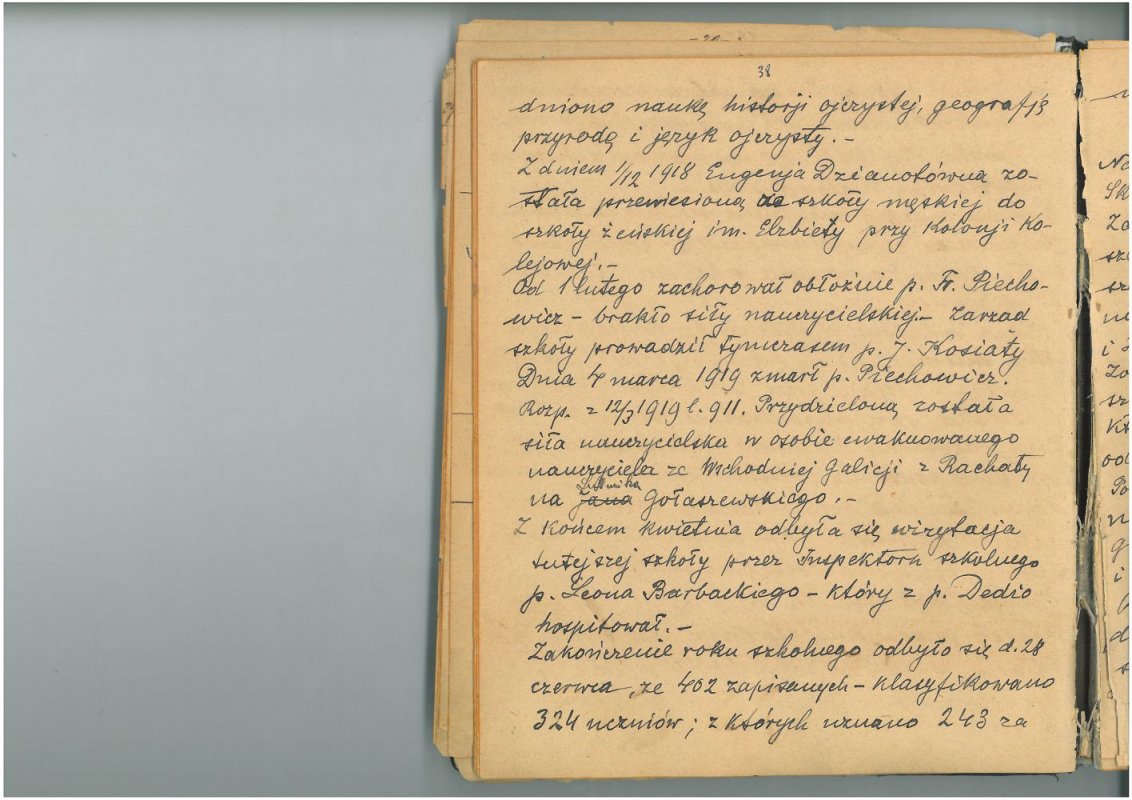 38
dniono naukę historji ojczystej, geografję
przyrodę i język ojczysty. -
Z dniem 1/12 1918 Eugenja Dzianotówna zo-
stała przeniesioną ze szkoły męskiej do
szkoły żeńskiej im. Elżbiety przy Kolonji Ko-
lejowej. -
Od 1 lutego zachorował obłożnie p. Fr. Piecho-
wicz - brakło siły nauczycielskiej - Zarząd
szkoły prowadził tymczasem p. J. Kosiaty
Dnia 4 marca 1919 zmarł p. Piechowicz.
Rozp. z 12/3 1919 l. 911. Przydzieloną została
siła nauczycielska w osobie ewakuowanego
nauczyciela ze Wschodniej Galicji z Rachaty
na Jana Gołaszewskiego. -
Z końcem kwietnia odbyła się wizytacja
tutejszej szkoły przez Inspektora szkolnego
p. Leona Barbackiego - który z p. Dedio
hospitował. -
Zakończenie roku szkolnego odbyło się d. 28
czerwca, ze 402 zapisanych - klasyfikowano
324 uczniów; z których uznano 243 za